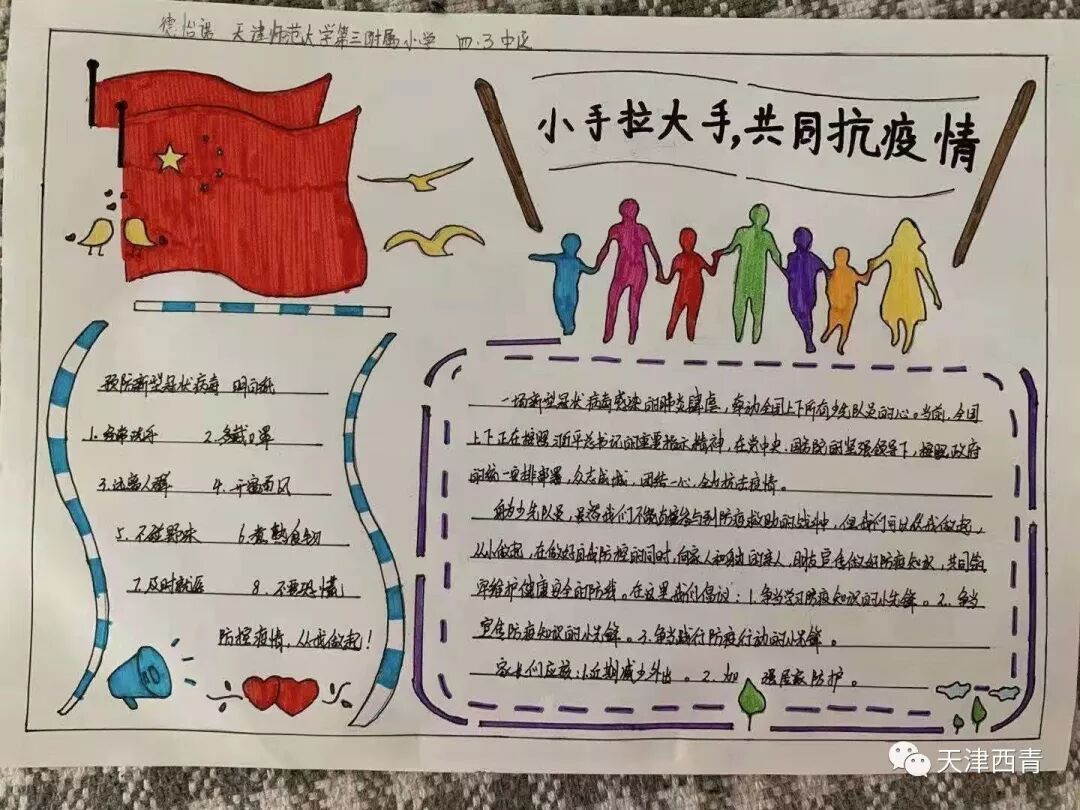 德怡诺 天津师范大学第三附属小学 四.3中队
小手拉大手,共同抗疫情
预防新型冠状病毒 明白纸
1. 经常洗手 2. 多戴口罩
3. 远离人群 4. 开窗通风
5. 不碰野味 6. 煮熟食物
7. 及时就医 8. 不要恐慌
防控疫情，从我做起！
一场新型冠状病毒感染的肺炎肆虐，牵动全国上下所有少先队员的心。当前,全国
上下正在按照习近平总书记的重要指示精神，在党中央、国务院的坚强领导下，按照政府
的统一安排部署，众志成城，团结一心，全力抗击疫情。
身为少先队员，虽然我们不能直接参与到防疫救助的战斗中，但我们可以从我做起，
从小做起，在做好自我防控的同时，向家人和的亲人、朋友宣传做好防疫知识，共同筑
牢维护健康安全的防线。在这里我们倡议：1. 争当学习防疫知识的小先锋。2. 争当
宣传防疫知识的小先锋。3. 争当践行防疫行动的小先锋。
家长们应该：1.近期减少外出。2. 加强居家防护。
天津西青